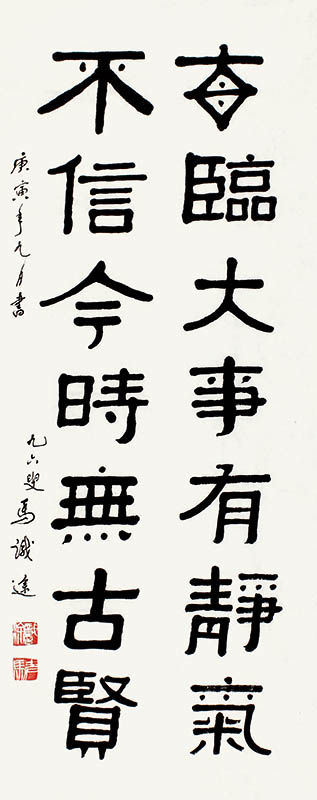 每臨大事有靜氣
不信今時無古賢
庚寅年九月書
九六叟馬識途